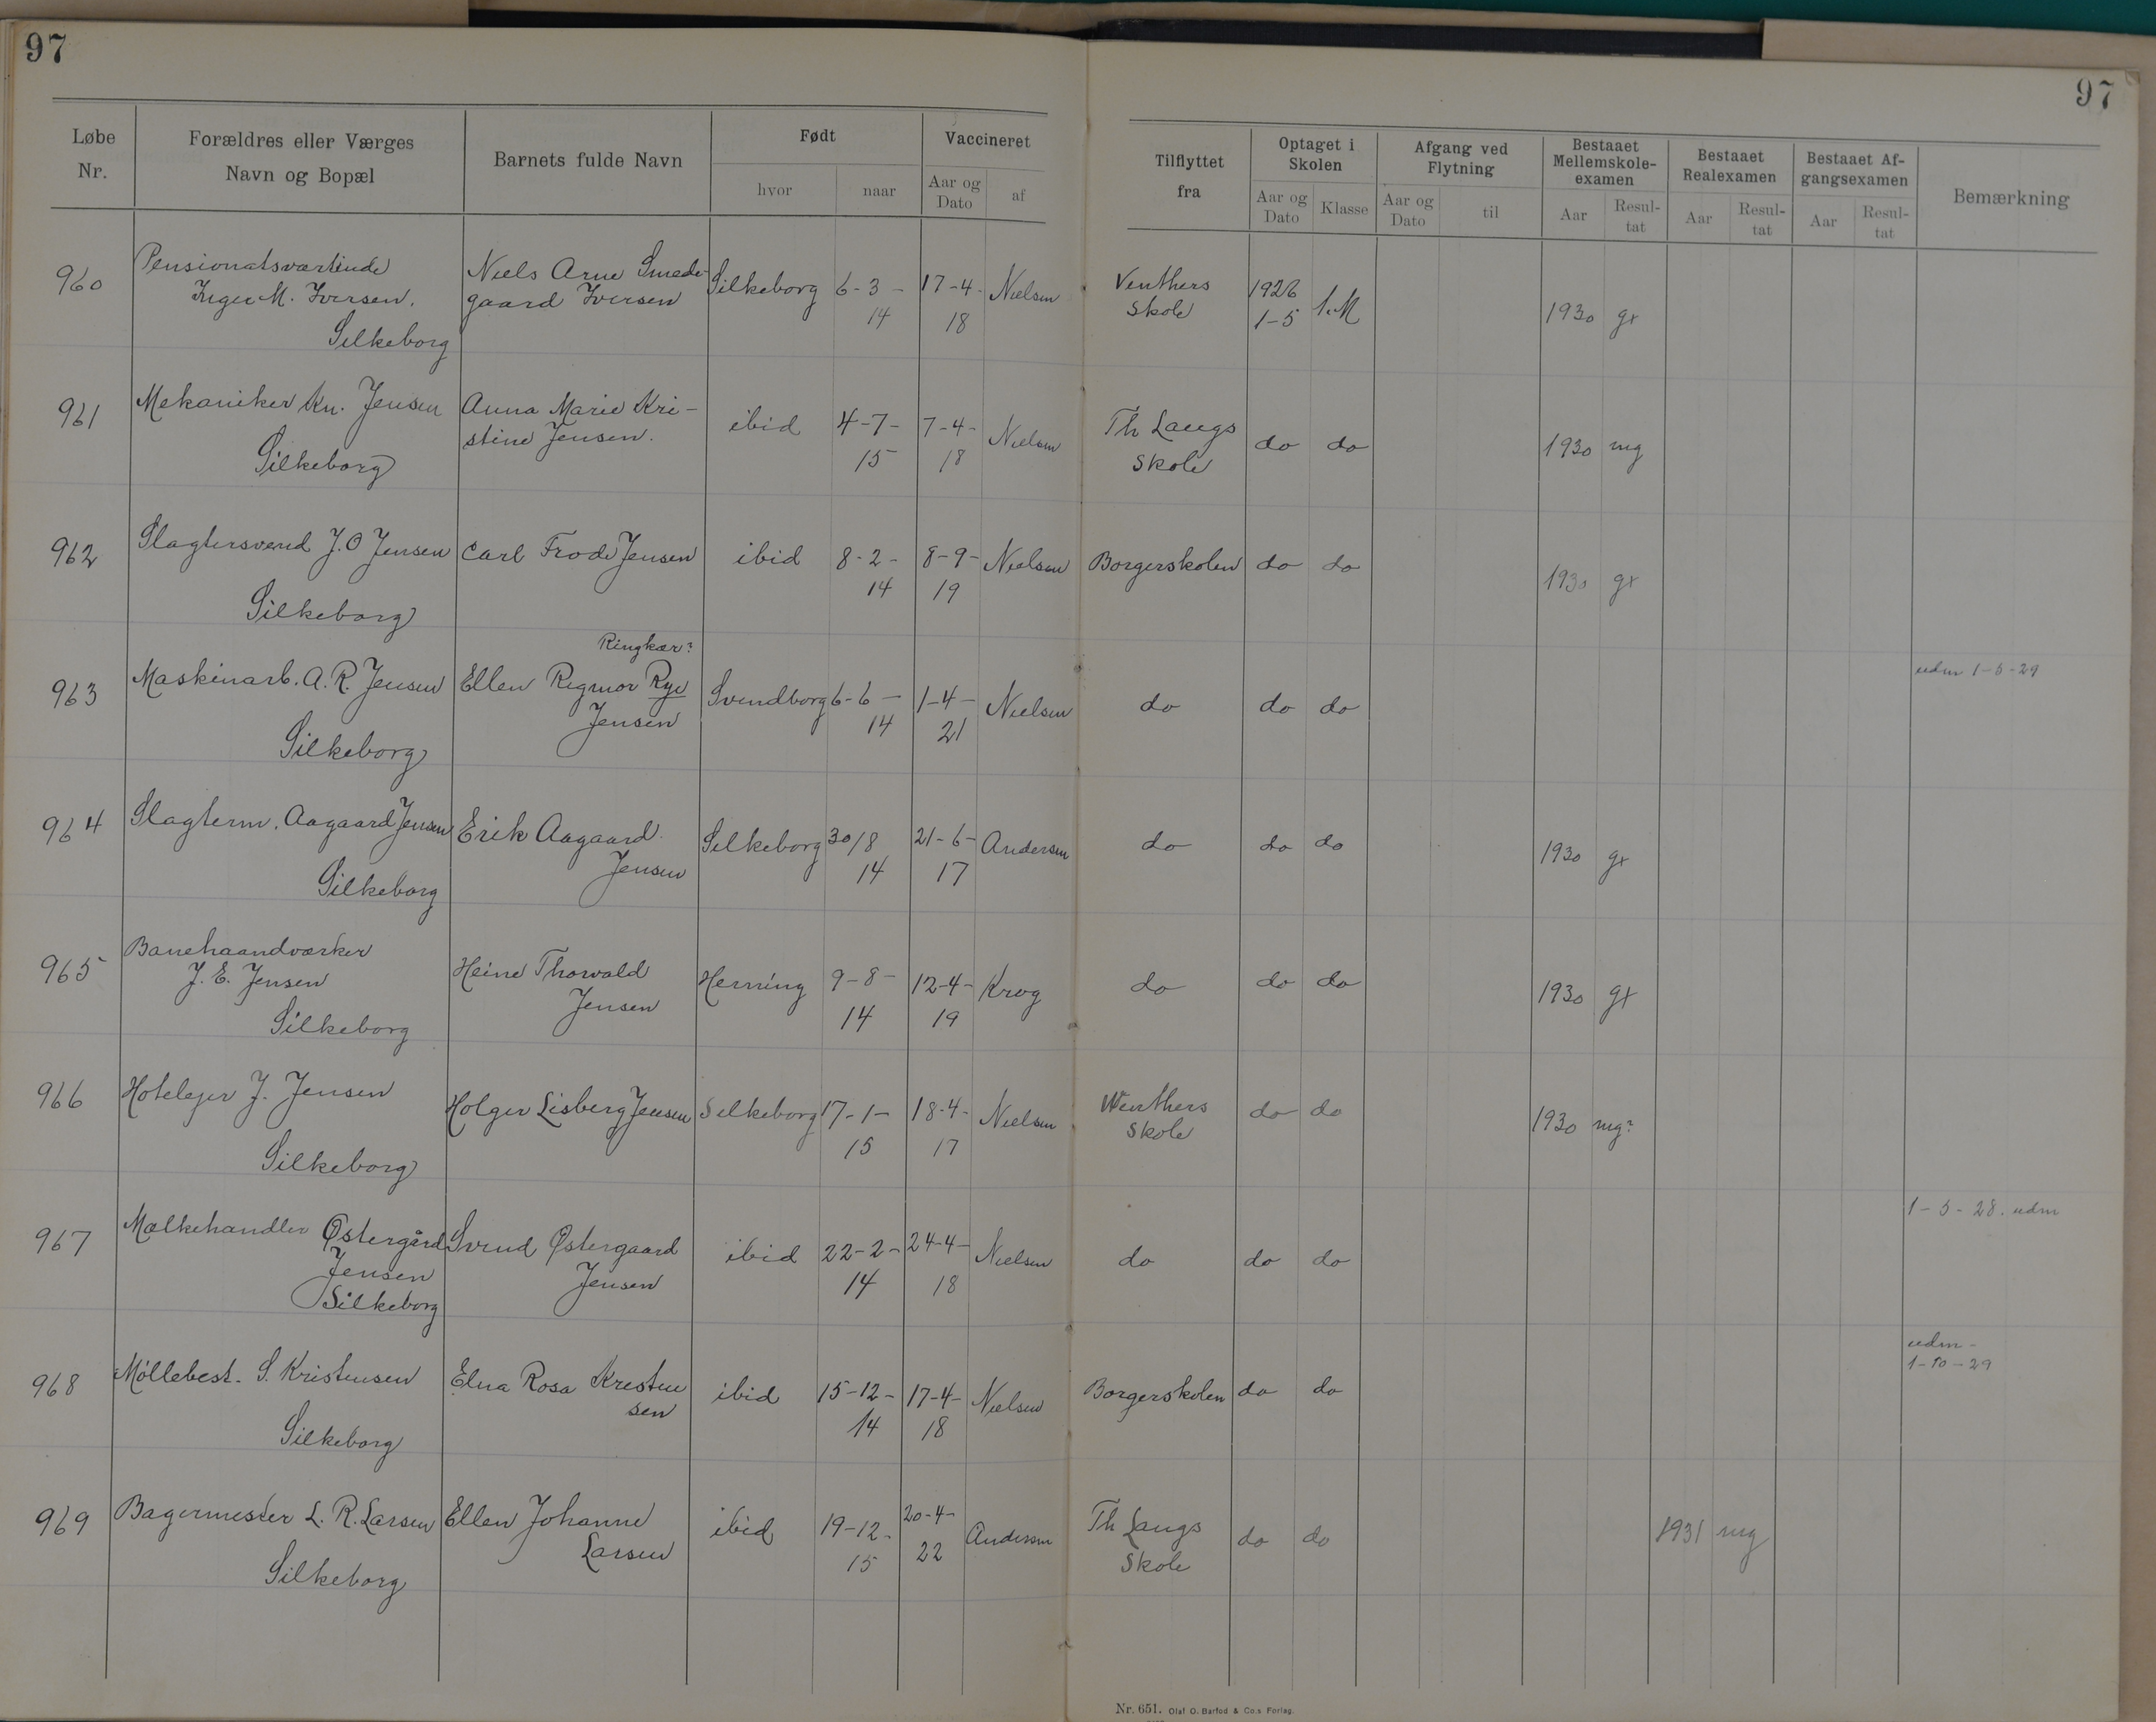 97
97
Løbe Nr.
Forældres eller Værges Navn og Bopæl
Barnets fulde Navn
Født
hvor
naar
Vaccineret
Aar og Dato
af
Tilflyttet fra
Optaget i Skolen
Aar og Dato
Klasse
Afgang ved Flytning
Aar og Dato
til
Bestaaet Mellemskole-examen
Aar
Resul-tat
Bestaaet Realexamen
Aar
Resul-tat
Bestaaet Af-gangsexamen
Aar
Resul-tat
Bemærkning
960 Pensionatsværtinde Niels Arne Smede- Silkeborg 6-3- 17-4- Nielsen Venthers 1926 1.M 1930 g+
Inger M. Iversen. gaard Iversen 14 18 Skole 1-5
Silkeborg
961 Mekaniker Kn. Jensen Anna Marie Kri- ibid 4-7- 7-4- Nielsen Th Langs do do 1930 mg
Silkeborg stine Jensen. 15 18 Skole
962 Slagtersvend J.O Jensen Carl Frode Jensen ibid 8-2- 8-9- Nielsen Borgerskolen do do 1930 g+
Silkeborg 14 19
Ringkær?
963 Maskinarb. A.R. Jensen Ellen Rigmor Rye Svendborg 6-6- 1-4- Nielsen do do do udm 1-5-29
Silkeborg Jensen 14 21
964 Slagterm. Aagaard Jensen Erik Aagaard Silkeborg 30/8 21-6- Andersen do do do 1930 g+
Silkeborg Jensen 14 17
965 Banehaandværker Heine Thorvald Herning 9-8- 12-4- Krog do do do 1930 g+
J.E. Jensen Jensen 14 19
Silkeborg
966 Hotelejer J. Jensen Holger Lisberg Jensen Silkeborg 17-1- 18-4- Nielsen Wenthers do do 1930 mg?
Silkeborg 15 17 Skole
967 Mælkehandler Østergård Svend Østergaard ibid 22-2- 24-4- Nielsen do do do 1-5-28. udm
Jensen Jensen 14 18
Silkeborg
968 Möllebest. S. Kristensen Elna Rosa Kresten ibid 15-12- 17-4- Nielsen Borgerskolen do do udm-
Silkeborg sen 14 18 1-10-29
969 Bagermester L.R. Larsen Ellen Johanne ibid 19-12- 20-4- Andersen Th Langs do do 1931 mg
Silkeborg Larsen 15 22 Skole
Nr. 651. Olaf O. Barfod & Co.s Forlag.